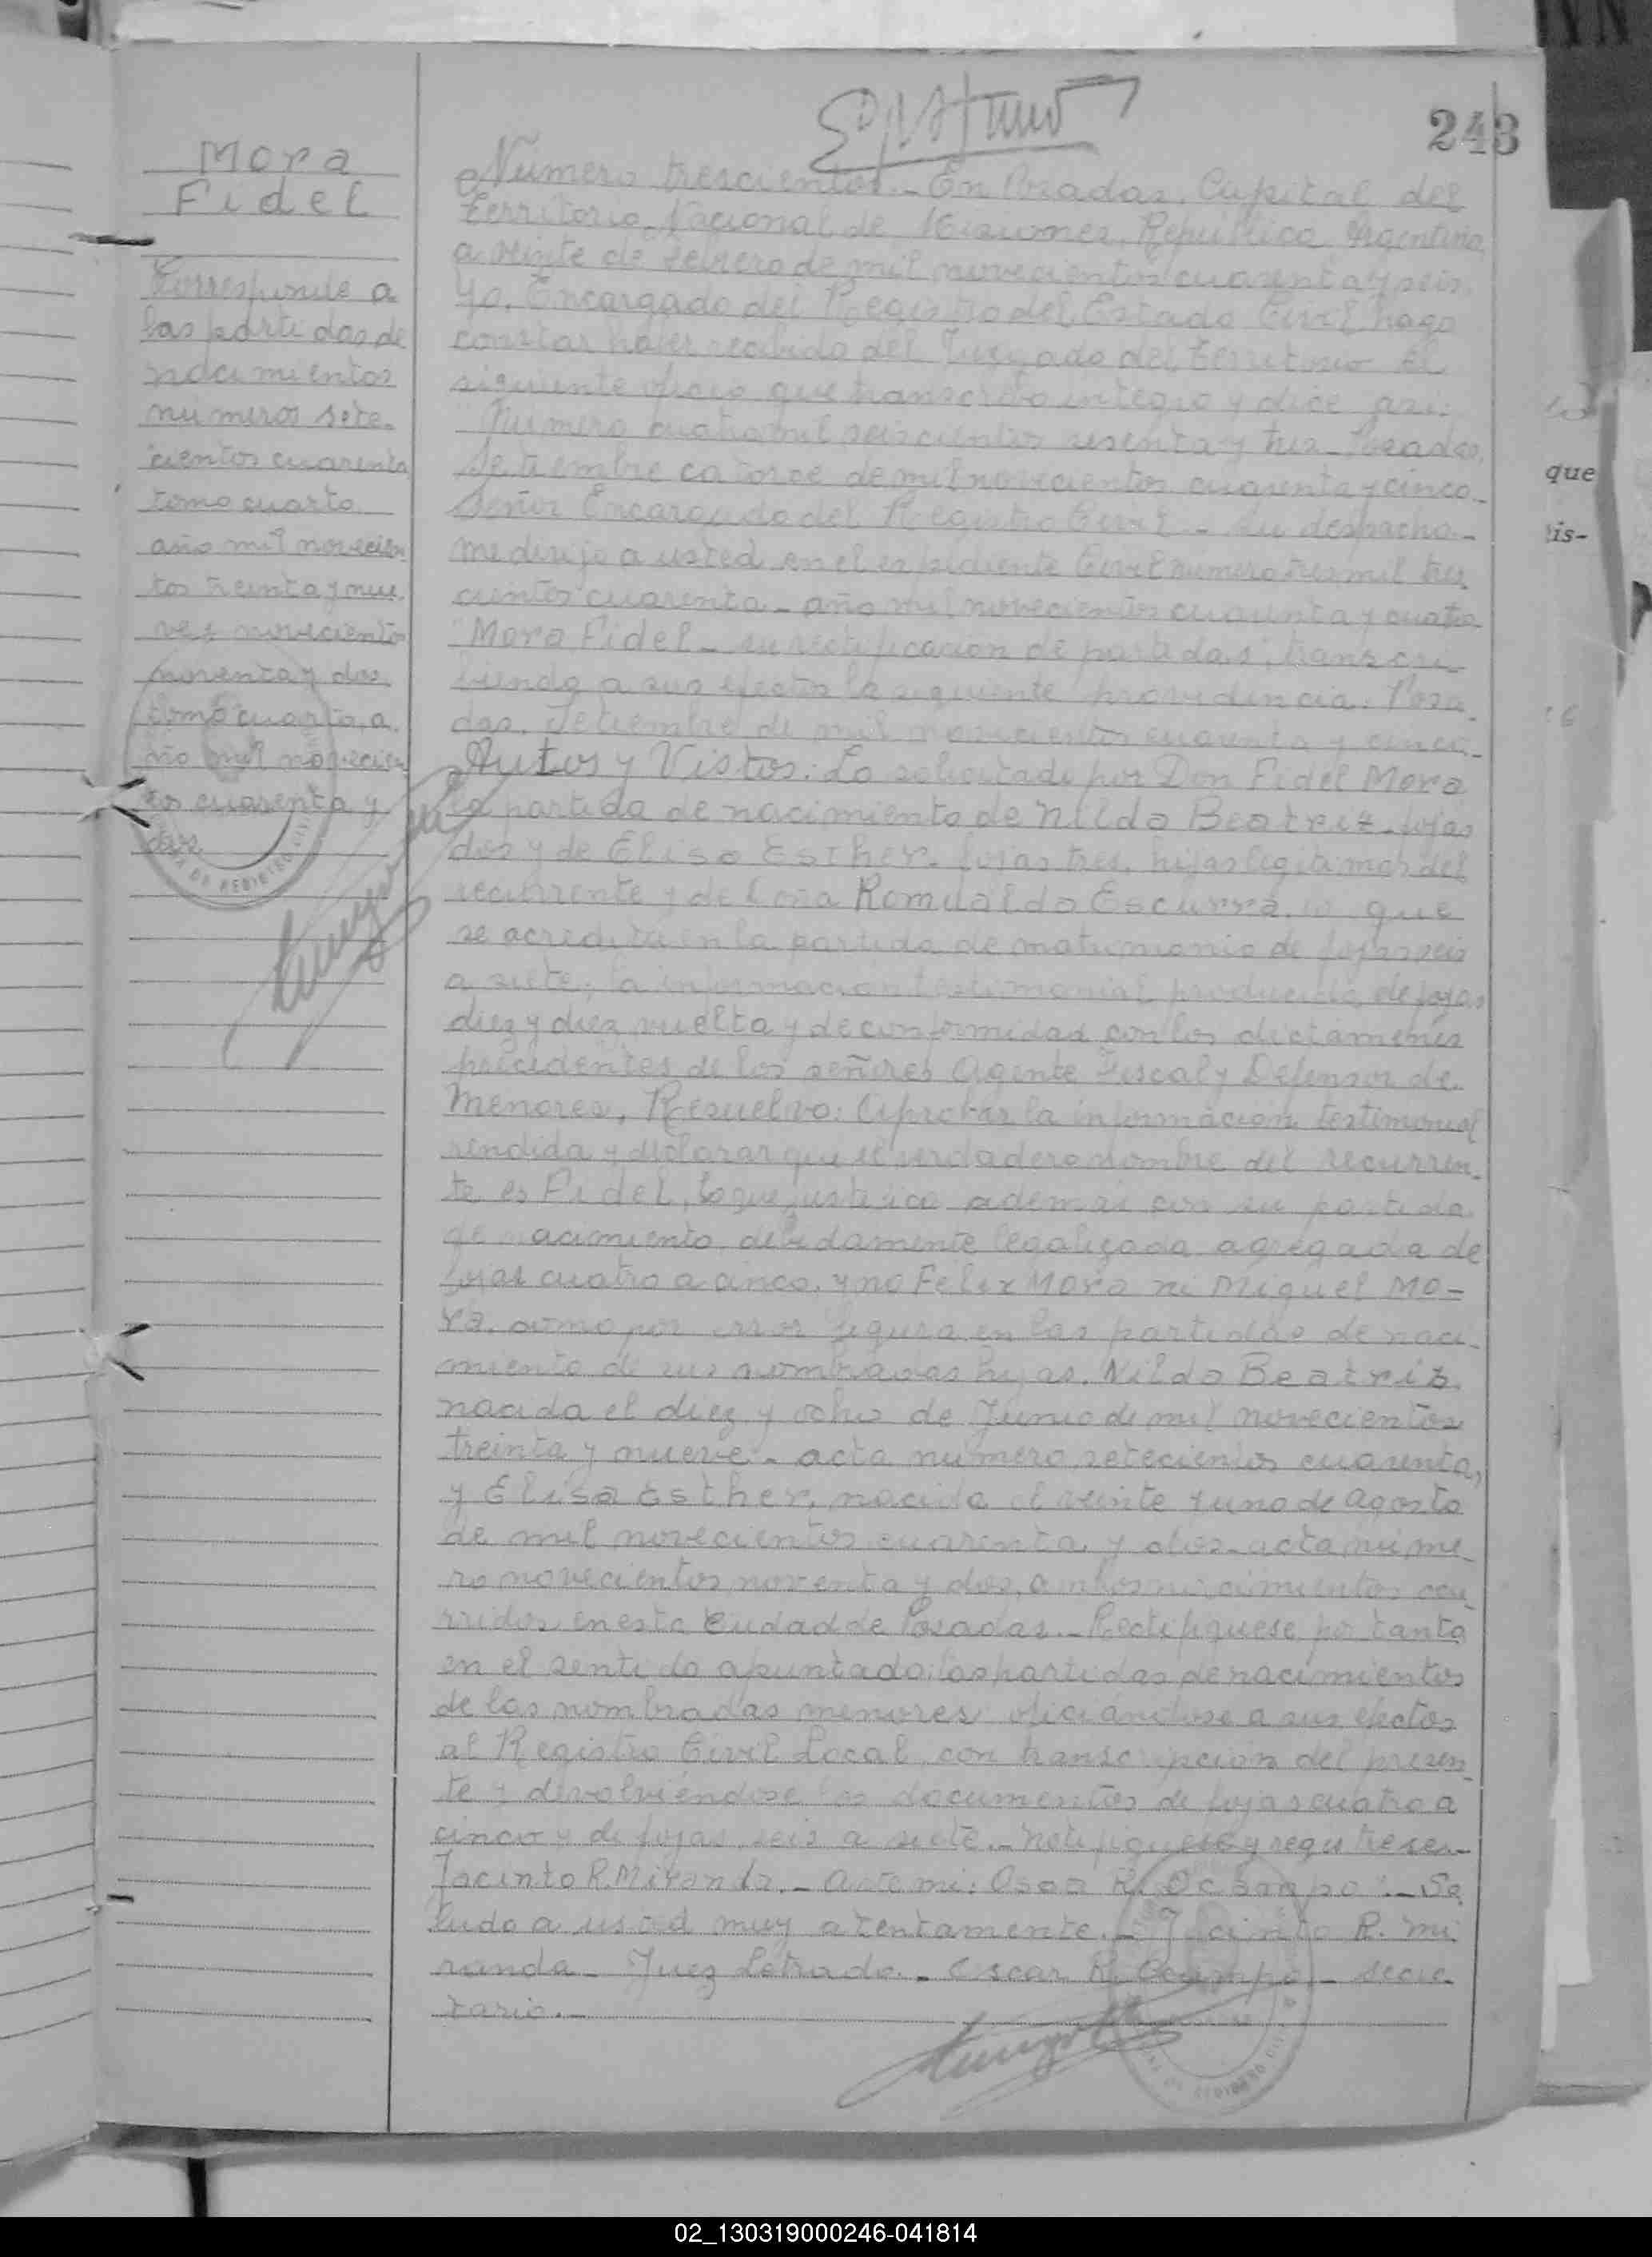 243
Mora
Fidel
Corresponde a
las partidas de
nacimientos
numeros sete-
cientos cuarenta
tomo cuarto
año mil novecien
tos treinta y nue
ve y novecientos
noventa y dos
tomo cuarto, a
ño mil novecien
tos cuarenta y
dos
Numero trescientos.- En Posadas, Capital del
Territorio Nacional de Misiones, Republica Argentina
a veinte de febrero de mil novecientos cuarenta y seis.
Yo, Encargado del Registro del Estado Civil hago
constar haber recibido del Juzgado del Territorio el
siguiente oficio que transcribo integro y dice asi:
"Numero cuatro mil seiscientos sesenta y tres - Posadas,
Setiembre catorce de mil novecientos cuarenta y cinco.-
Señor Encargado del Registro Civil - Su despacho.-
me dirijo a usted en el expediente Civil numero tres mil tres
cientos cuarenta - año mil novecientos cuarenta y cuatro
"Mora Fidel - su rectificacion de partidas", transcri-
biendo a sus efectos la siguiente providencia: Posa-
das, Setiembre de mil novecientos cuarenta y cinco.-
Autos y Vistos: Lo solicitado por Don Fidel Mora
la partida de nacimiento de Nilda Beatriz - fojas
dos y de Elisa Esther - fojas tres, hijas legitimas del
recurrente y de Doña Romualda Escurra, lo que
se acredita en la partida de matrimonio de fojas seis
a siete; la informacion testimonial producida de fojas
diez y diez vuelta y de conformidad con los dictamenes
precedentes de los señores Agente Fiscal y Defensor de
Menores, Resuelvo: Aprobar la informacion testimonial
rendida y declarar que el verdadero nombre del recurren-
te es Fidel, lo que justifica ademas con su partida
de nacimiento debidamente legalizada agregada de
fojas cuatro a cinco, y no Felix Mora ni Miguel Mo-
ra, como por error figura en las partidas de naci-
miento de sus nombradas hijas, Nilda Beatriz,
nacida el diez y ocho de Junio de mil novecientos
treinta y nueve - acta numero setecientos cuarenta,
y Elisa Esther, nacida el veinte y uno de agosto
de mil novecientos cuarenta y dos - acta nume-
ro novecientos noventa y dos, ambos nacimientos ocu-
rridos en esta Ciudad de Posadas.- Rectifiquese por tanto
en el sentido apuntado las partidas de nacimientos
de las nombradas menores oficiándose a sus efectos
al Registro Civil Local, con transcripción del presen-
te y devolviéndose los documentos de fojas cuatro a
cinco y de fojas seis a siete.- Notifiquese y registrese.-
Jacinto R. Miranda.- Ante mi: Oscar R. Ocampo".- Sa
ludo a usted muy atentamente.- Jacinto R. Mi
randa - Juez Letrado.- Oscar R. Ocampo - Secre
tario.-
que
is-
02_130319000246-041814